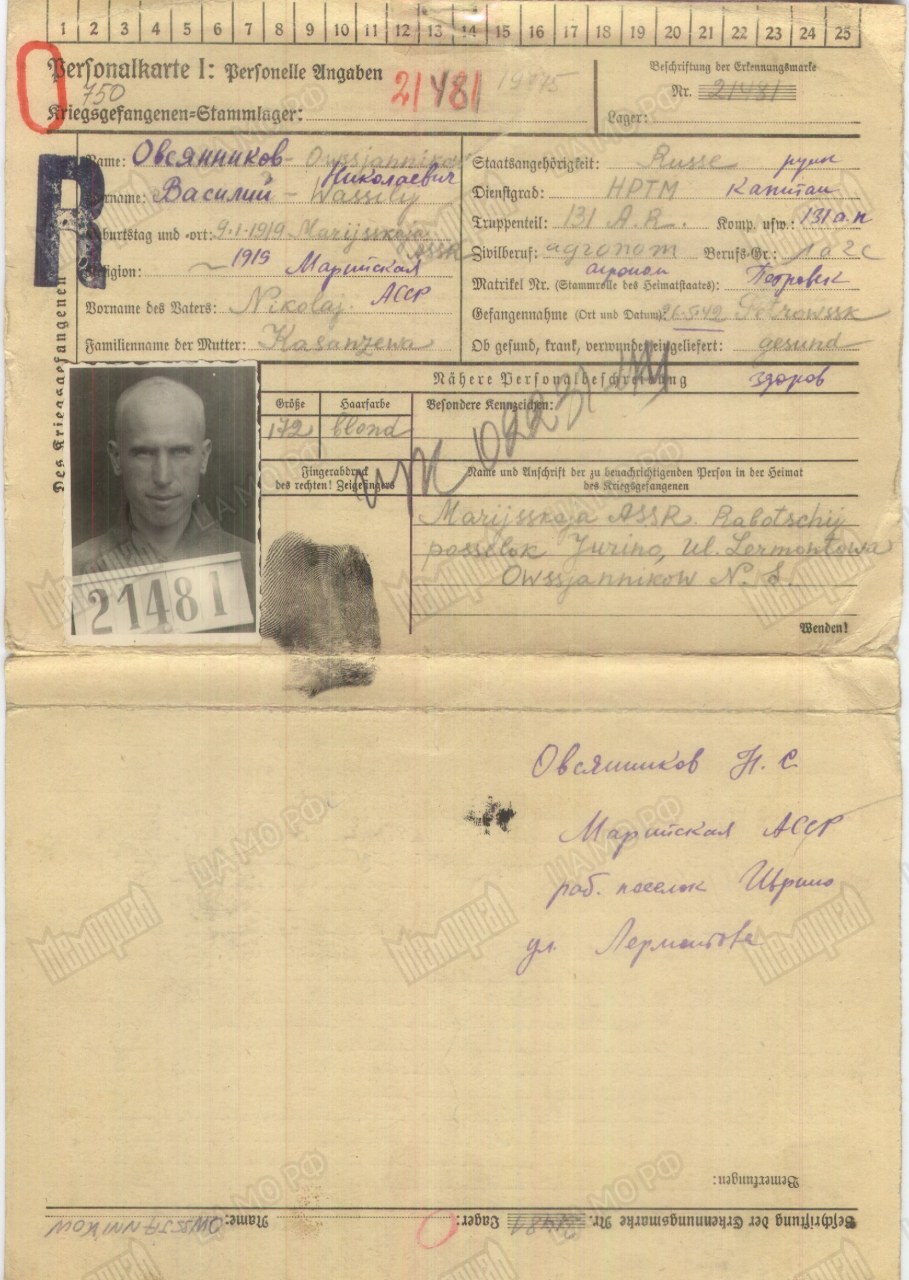 1 2 3 4 5 6 7 8 9 10 11 12 13 14 15 16 17 18 19 20 21 22 23 24 25
Personalkarte I: Personelle Angaben
21481
Beschriftung der Erkennungsmarke
750
Nr. 21481
Kriegsgefangenen=Stammlager:
Lager:
R
Des Kriegsgefangenen
Name: Овсянников - Owssjannikow
Николаевич
Vorname: Василий - Wassily
Geburtstag und =ort: 9.1.1919 Marijsskaja ASSR
1919 Марийская АССР
Religion: —
Vorname des Vaters: Nikolaj.
Familienname der Mutter: Kasanzewa
Staatsangehörigkeit: Russe русск
Dienstgrad: HPTM Капитан
Truppenteil: 131 A.R. Komp. usw.: 131 а.п
Zivilberuf: agronom Berufs=Gr.: 1a2c
агроном
Matrikel Nr. (Stammrolle des Heimatstaates): Петровск
Gefangennahme (Ort und Datum): 26.5.42 Petrowssk
Ob gesund, krank, verwundet eingeliefert: gesund
здоров
Nähere Personalbeschreibung
Größe Haarfarbe Besondere Kennzeichen:
172 blond
Fingerabdruck
des rechten! Zeigefingers
Name und Anschrift der zu benachrichtigenden Person in der Heimat
des Kriegsgefangenen
Marijsskaja ASSR. Rabotschij
posselok Jurino, Ul. Lermontowa
Owssjannikow N. S.
21481
Wenden!
Овсянников Н. С
Марийская АССР
раб. поселок Юрино
ул. Лермонтова
Bemerkungen:
Beschriftung der Erkennungsmarke Nr. 21481 Lager: Name: OWSSJANNIKOW
Мемориал
ЦАМО РФ